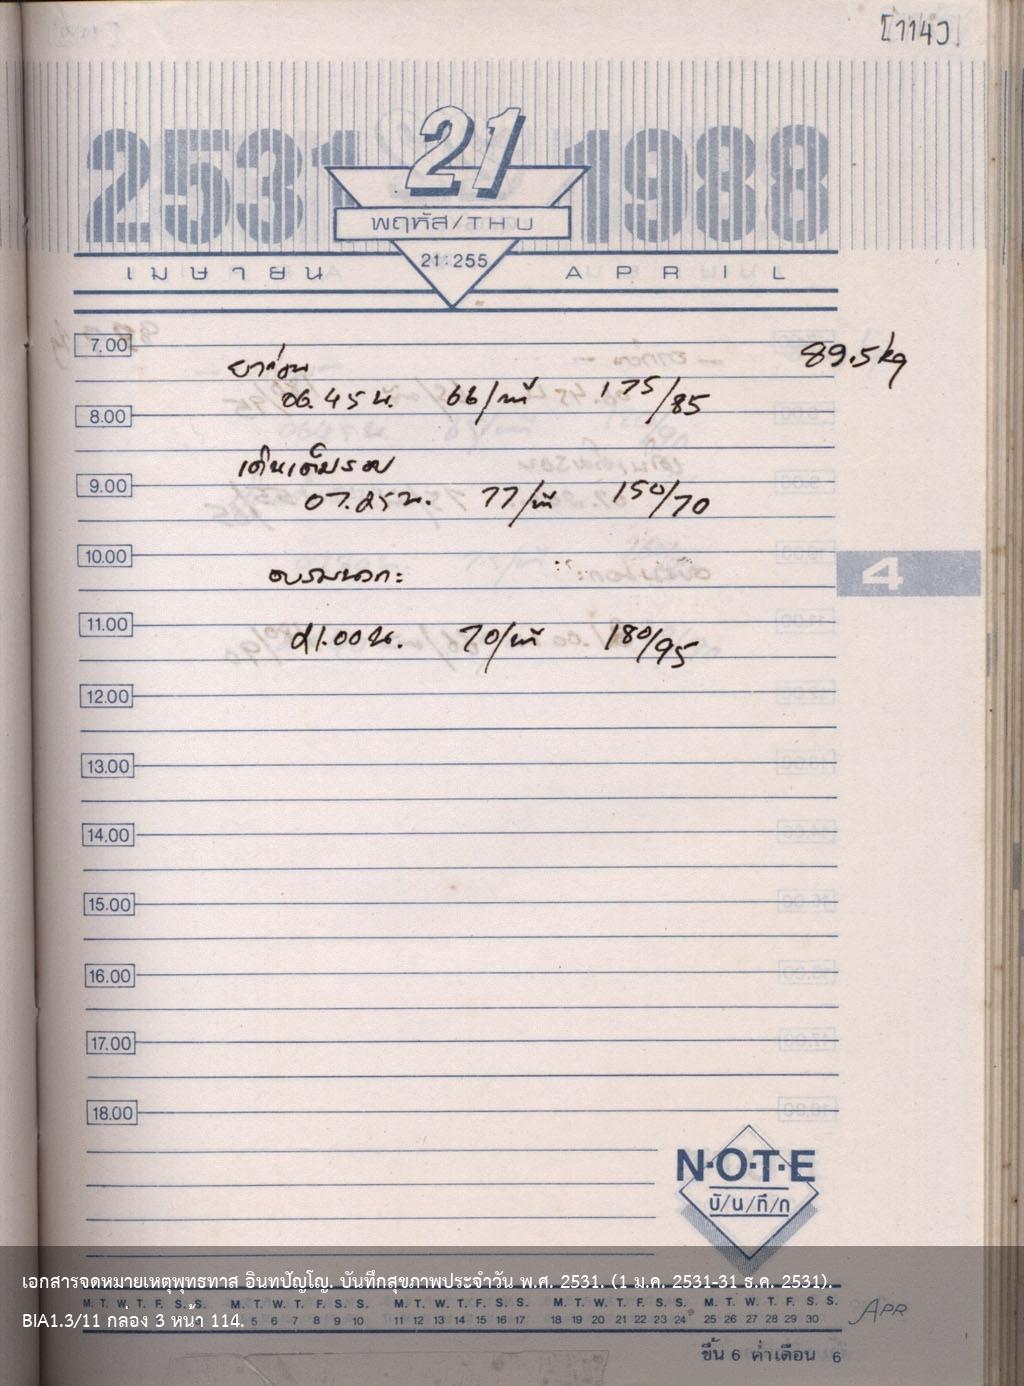 [114]
2531 21 1988
พฤหัส/THU
21:255
เมษายน APRIL
89.5kg
7.00
06.45 น. 66/นาที 175/85
8.00
เดินเต็มรอบ
9.00
07.25 น. 77/นาที 150/70
10.00
4
11.00
21.00 น. 70/นาที 180/95
12.00
13.00
14.00
15.00
16.00
17.00
18.00
N·O·T·E
บั/น/ทึ/ก
เอกสารจดหมายเหตุพุทธทาส อินทปัญโญ. บันทึกสุขภาพประจำวัน พ.ศ. 2531. (1 ม.ค. 2531-31 ธ.ค. 2531).
M. T. W. T. F. S. S. M. T. W. T. F. S. S. M. T. W. T. F. S. S. M. T. W. T. F. S. S. M. T. W. T. F. S. S.
BIA1.3/11 กล่อง 3 หน้า 114.
5 6 7 8 9 10 11 12 13 14 15 16 17 18 19 20 21 22 23 24 25 26 27 28 29 30
APR
ขึ้น 6 ค่ำเดือน 6